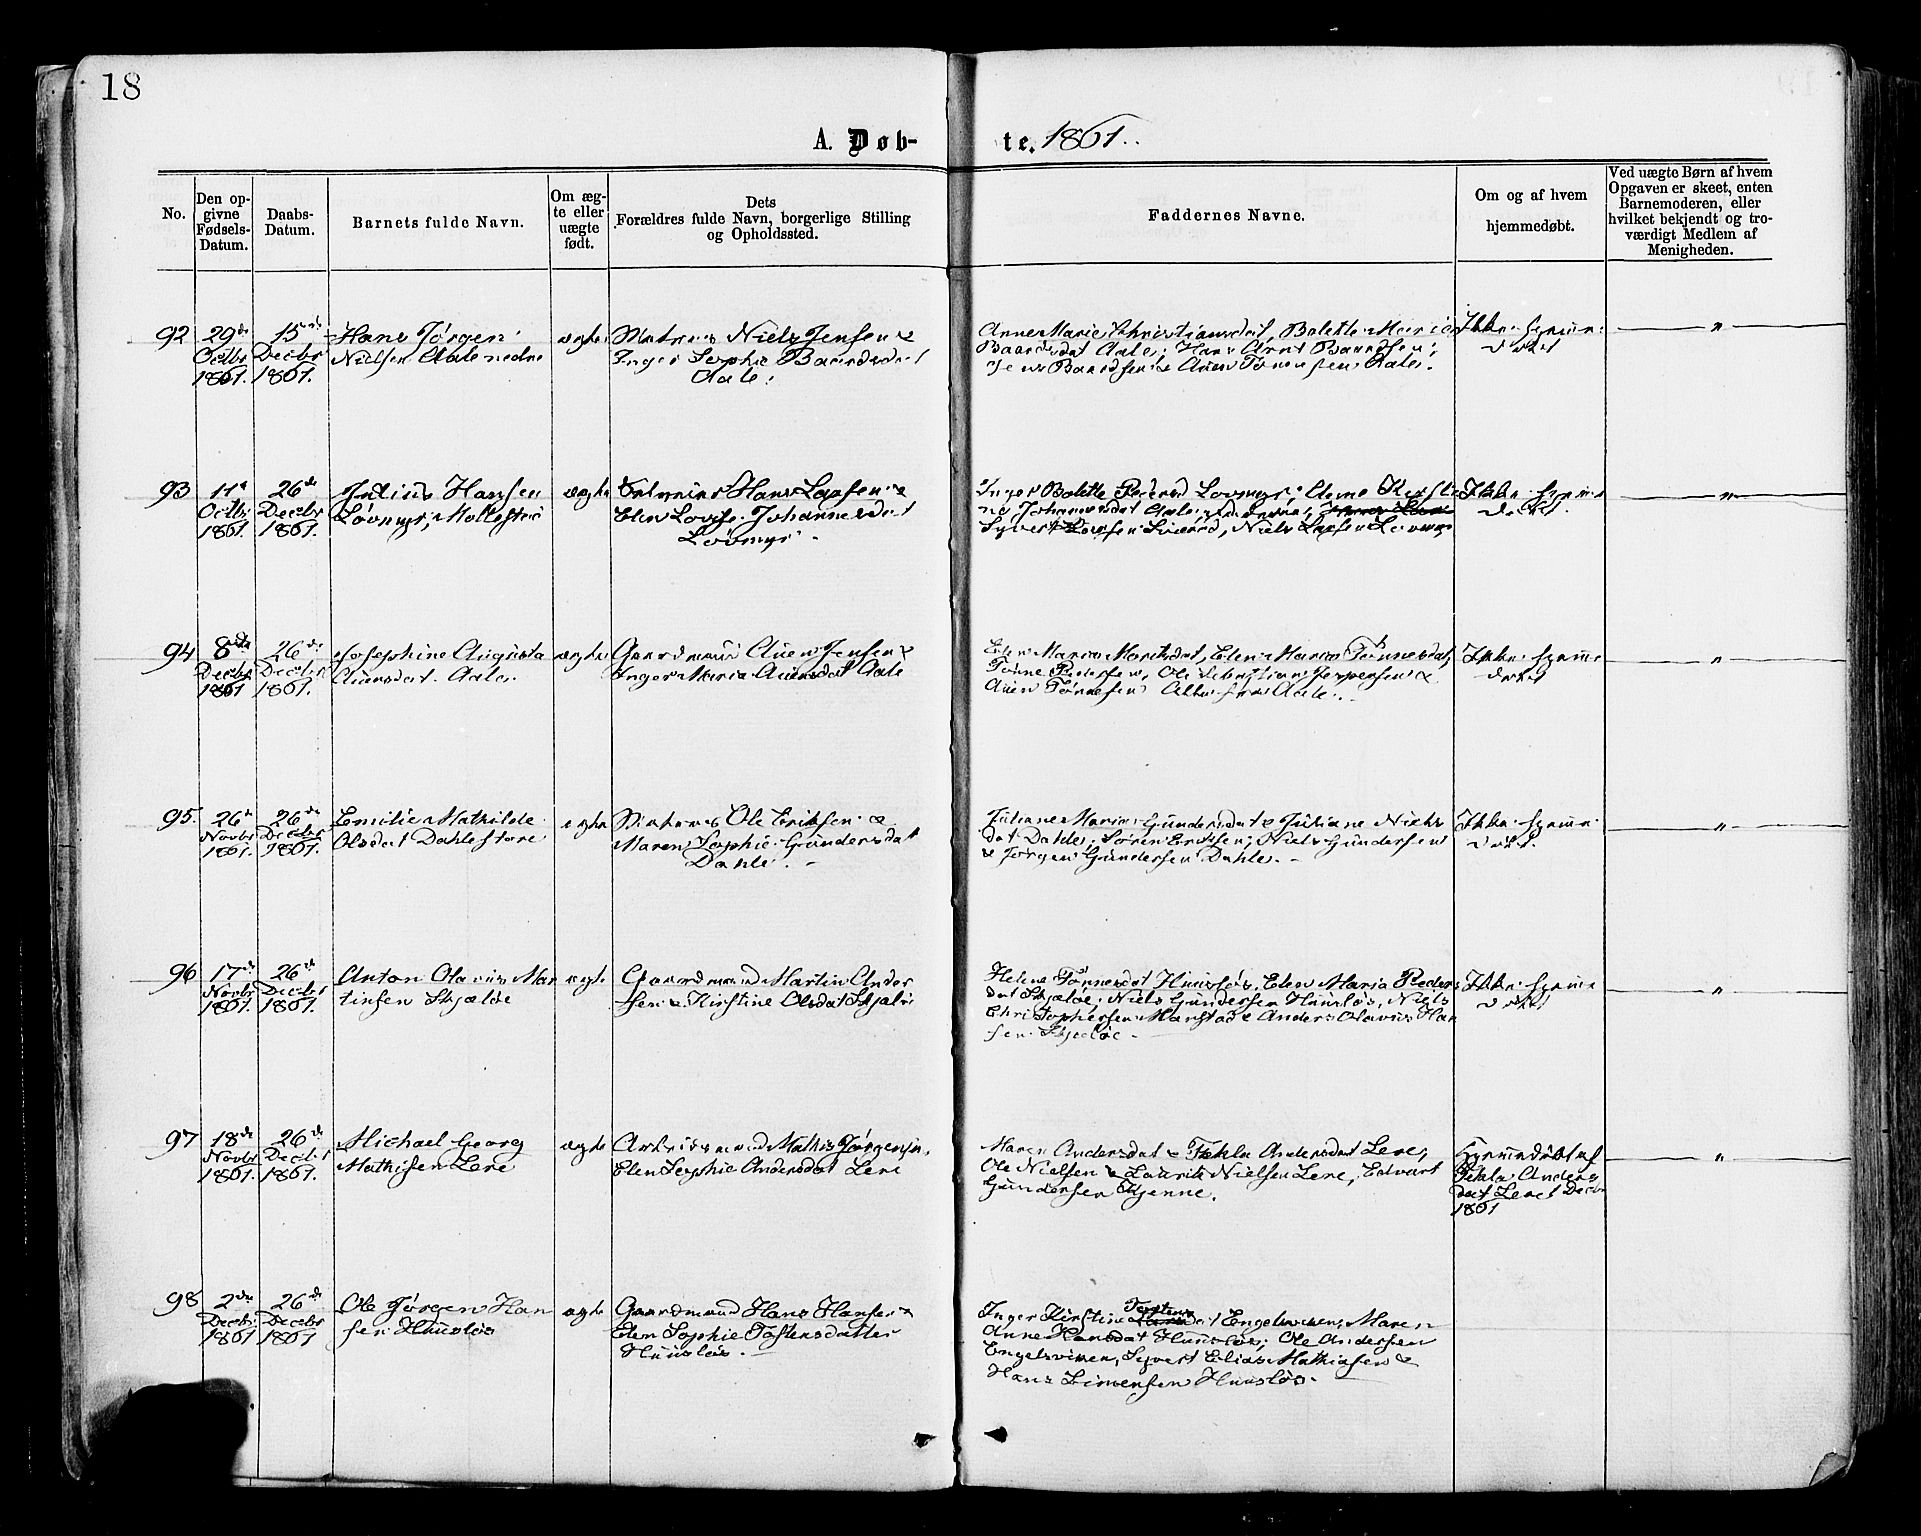 18
A. Døb-
te. 1861.
No.
Den op-
givne
Fødsels-
Datum.
Daabs-
Datum.
Barnets fulde Navn.
Om æg-
te eller
uægte
født.
Dets
Forældres fulde Navn, borgerlige Stilling
og Opholdssted.
Faddernes Navne.
Om og af hvem
hjemmedøbt.
Ved uægte Børn af hvem
Opgaven er skeet, enten
Barnemoderen, eller
hvilket bekjendt og tro-
værdigt Medlem af
Menigheden.
92
29de
Octbr
1861.
15de
Decbr
1861.
Hans Jørgen
Nielsen Aale nedre
ægte
Matros Niels Jensen &
Inger Sophie Baardsdat
Aale.
Anne Marie Christiansdat, Bolette Marie
Baardsdat Aale; Hans Arnt Baardsen,
Jens Baardsen & Auen Tønnesen Aale.
Ikke hjemme
døbt
"
93
11te
Octbr
1861.
26de
Decbr
1861.
Julius Hansen
Løvmyr, Mollestrø
ægte
Hans Larsen &
Elen Lovise Johannesdat
Løvmyr.
Inger Bolette Pedersd Lovmyr, Anne Kirsti
ne Johannesdat Aale
Syvert Larsen Sværd, Niels Larsen Lovmyr
Ikke hjemme
døbt.
"
94
8de
Decbr
1861
26de
Decbr
1861.
Josephine Augusta
Auensdat Aale.
ægte
Gaardmand Auen Jensen &
Inger Maria Auensdat Aale
Elen Maria Moritsdat, Elen Maria Tønnesdat,
Tønne Pedersen, Ole Christian Jespersen &
Auen Tønnesen Alle fra Aale.
Ikke hjemme
døbt
"
95.
26de
Novbr
1861.
26de
Decbr
1861.
Emilie Mathilde
Olsdat Dahle store
ægte
Matros Ole Eriksen &
Maren Sophie Gundersdat
Dahle.
Juliane Marie Gundersdat & Juliane Niels
dat Dahle, Søren Eriksen, Niels Gundersen
& Jørgen Gundersen Dahle.
Ikke hjemme
døbt.
"
96
17de
Novbr
1861.
26de
Decbr
1861.
Anton Olavus Mar
tinsen Skjæløe
ægte
Gaardmand Martin Ander
sen & Kirstine Olsdat Skjælø
Helene Tønnesdat Huusløs, Elen Maria Peders
dat Skjæløe, Niels Gundersen Huusløs, Niels
Christophersen Manstad & Anders Olavus Han
sen Skjeløe
Ikke hjemme
døbt
"
97
18de
Novbr
1861.
26de
Decbr
1861.
Michael Georg
Mathisen Lere
ægte
Arbeidsmand Mathis Jørgensen,
Elen Sophie Andersdat Lere
Maren Andersdat & Thekla Andersdat Lere,
Ole Nielsen & Laurits Nielsen Lere, Edvart
Gundersen Stjenne.
Hjemmedøbt af
Tekla Anders
dat Lere 1 Decbr
1861
"
98
2den
Decbr
1861
26de
Decbr
1861
Ole Jørgen Han
sen Huusløs
ægte
Gaardmand Hans Hansen &
Elen Sophie Tostensdatter
Huusløs.
Inger Kirstine Tostensdat Engelsviken, Maren
Anne Hansdat Huusløs, Ole Andersen
Engelsviken, Syvert Elias Mathiasen &
Hans Simensen Huusløs.